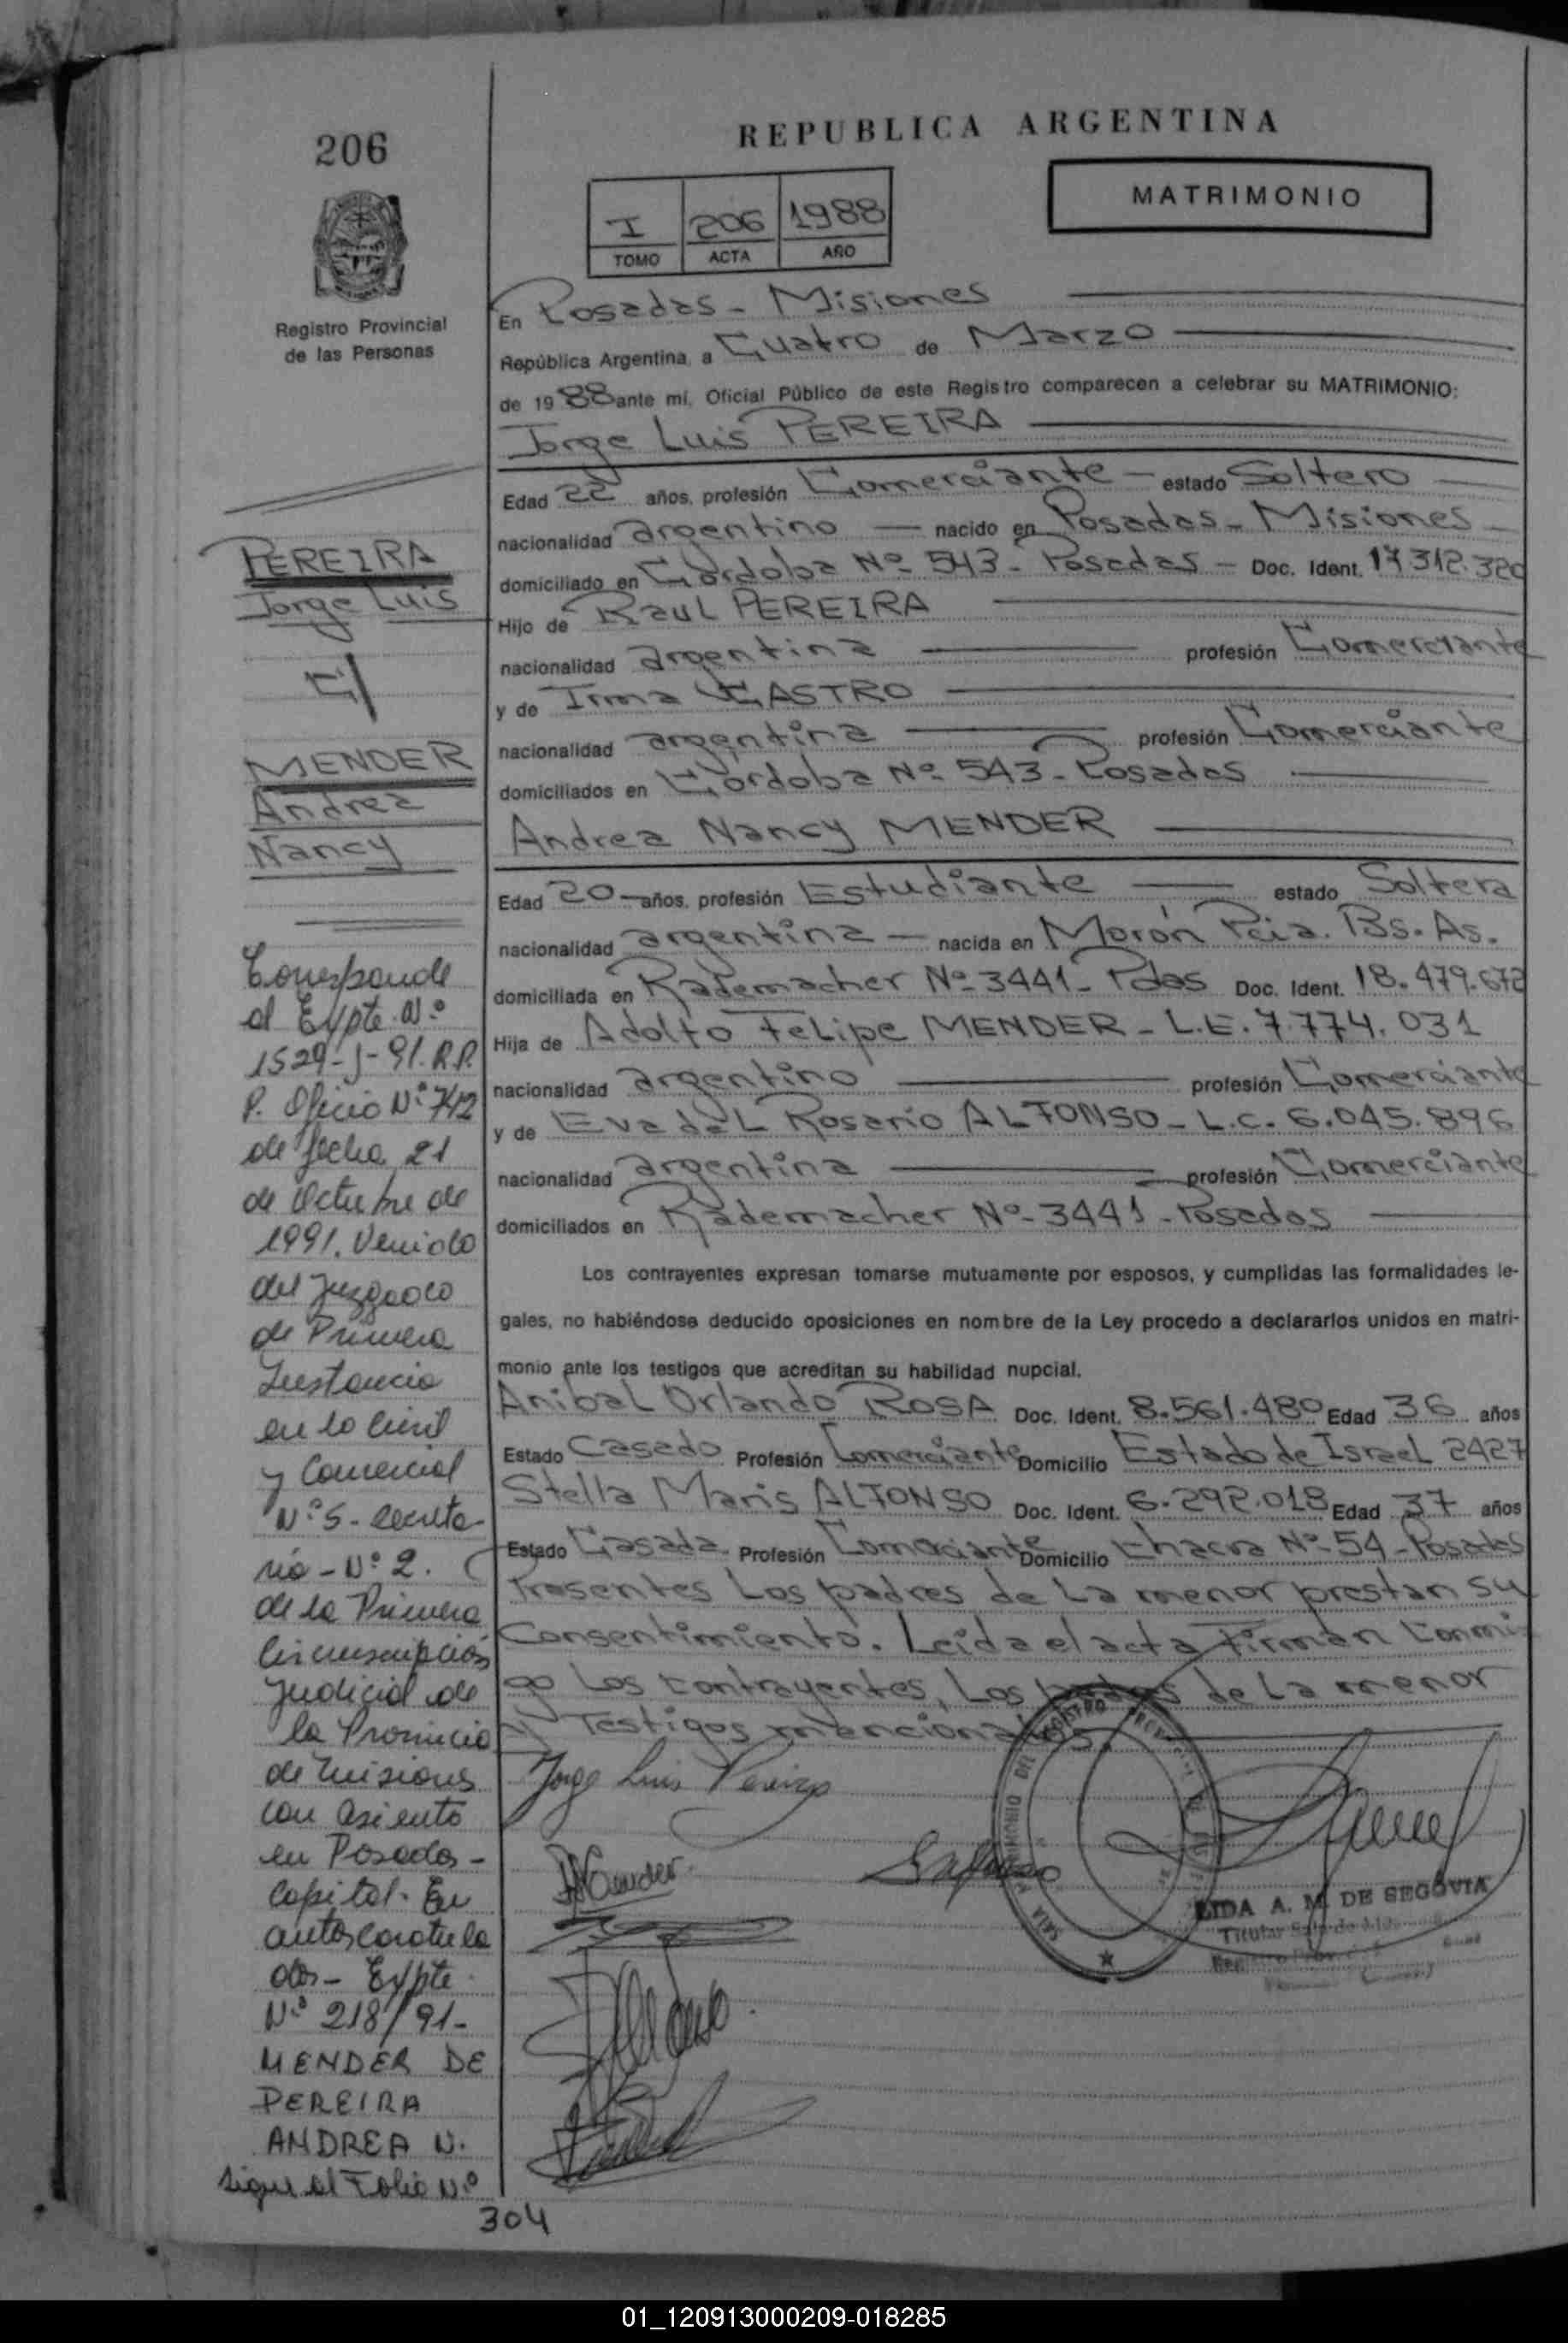 206
REPUBLICA ARGENTINA
MATRIMONIO
I 206 1988
TOMO ACTA AÑO
Registro Provincial
de las Personas
En Posadas - Misiones
República Argentina, a Cuatro de Marzo
de 1988 ante mí, Oficial Público de este Registro comparecen a celebrar su MATRIMONIO:
Jorge Luis PEREIRA
Edad 22 años, profesión Comerciante - estado Soltero
nacionalidad argentino - nacido en Posadas - Misiones
domiciliado en Córdoba Nº 543 - Posadas - Doc. Ident. 17.312.320
Hijo de Raul PEREIRA
nacionalidad argentina profesión Comerciante
y de Irma CASTRO
nacionalidad argentina profesión Comerciante
domiciliados en Córdoba Nº 543 - Posadas
Andrea Nancy MENDER
Edad 20 - años, profesión Estudiante estado Soltera
nacionalidad argentina - nacida en Morón Pcia. Bs. As.
domiciliada en Rademacher Nº 3441 - Pdas Doc. Ident. 18.479.672
Hija de Adolfo Felipe MENDER - L.E. 7.774.031
nacionalidad argentino profesión Comerciante
y de Eva del Rosario ALFONSO - L.C. 6.045.896
nacionalidad argentina profesión Comerciante
domiciliados en Rademacher Nº 3441 - Posadas
Los contrayentes expresan tomarse mutuamente por esposos, y cumplidas las formalidades le-
gales, no habiéndose deducido oposiciones en nombre de la Ley procedo a declararlos unidos en matri-
monio ante los testigos que acreditan su habilidad nupcial.
Anibal Orlando ROSA Doc. Ident. 8.561.480 Edad 36 años
Estado Casado Profesión Comerciante Domicilio Estado de Israel 2427
Stella Maris ALFONSO Doc. Ident. 6.292.018 Edad 37 años
Estado Casada Profesión Comerciante Domicilio Chacra Nº 54 - Posadas
Presentes Los padres de La menor prestan su
Consentimiento. Leida el acta Firman Conmi
go Los contrayentes, Los padres de La menor
y Testigos mencionados.
Jorge Luis Pereira
LIDA A. M. DE SEGOVIA
PEREIRA
Jorge Luis
c/
MENDER
Andrea
Nancy
Corresponde
al Expte. Nº
1529-J-91. R.P.
P. Oficio Nº 742
de fecha 21
de Octubre de
1991. Venido
del Juzgado
de Primera
Instancia
en lo Civil
y Comercial
Nº 5 - Secreta-
ria - Nº 2.
de la Primera
Circunscripción
Judicial de
la Provincia
de Misiones
con asiento
en Posadas -
Capital. En
autos caratula
dos - Expte
Nº 218/91-
MENDER DE
PEREIRA
ANDREA N.
sigue al Folio Nº
304
01_120913000209-018285